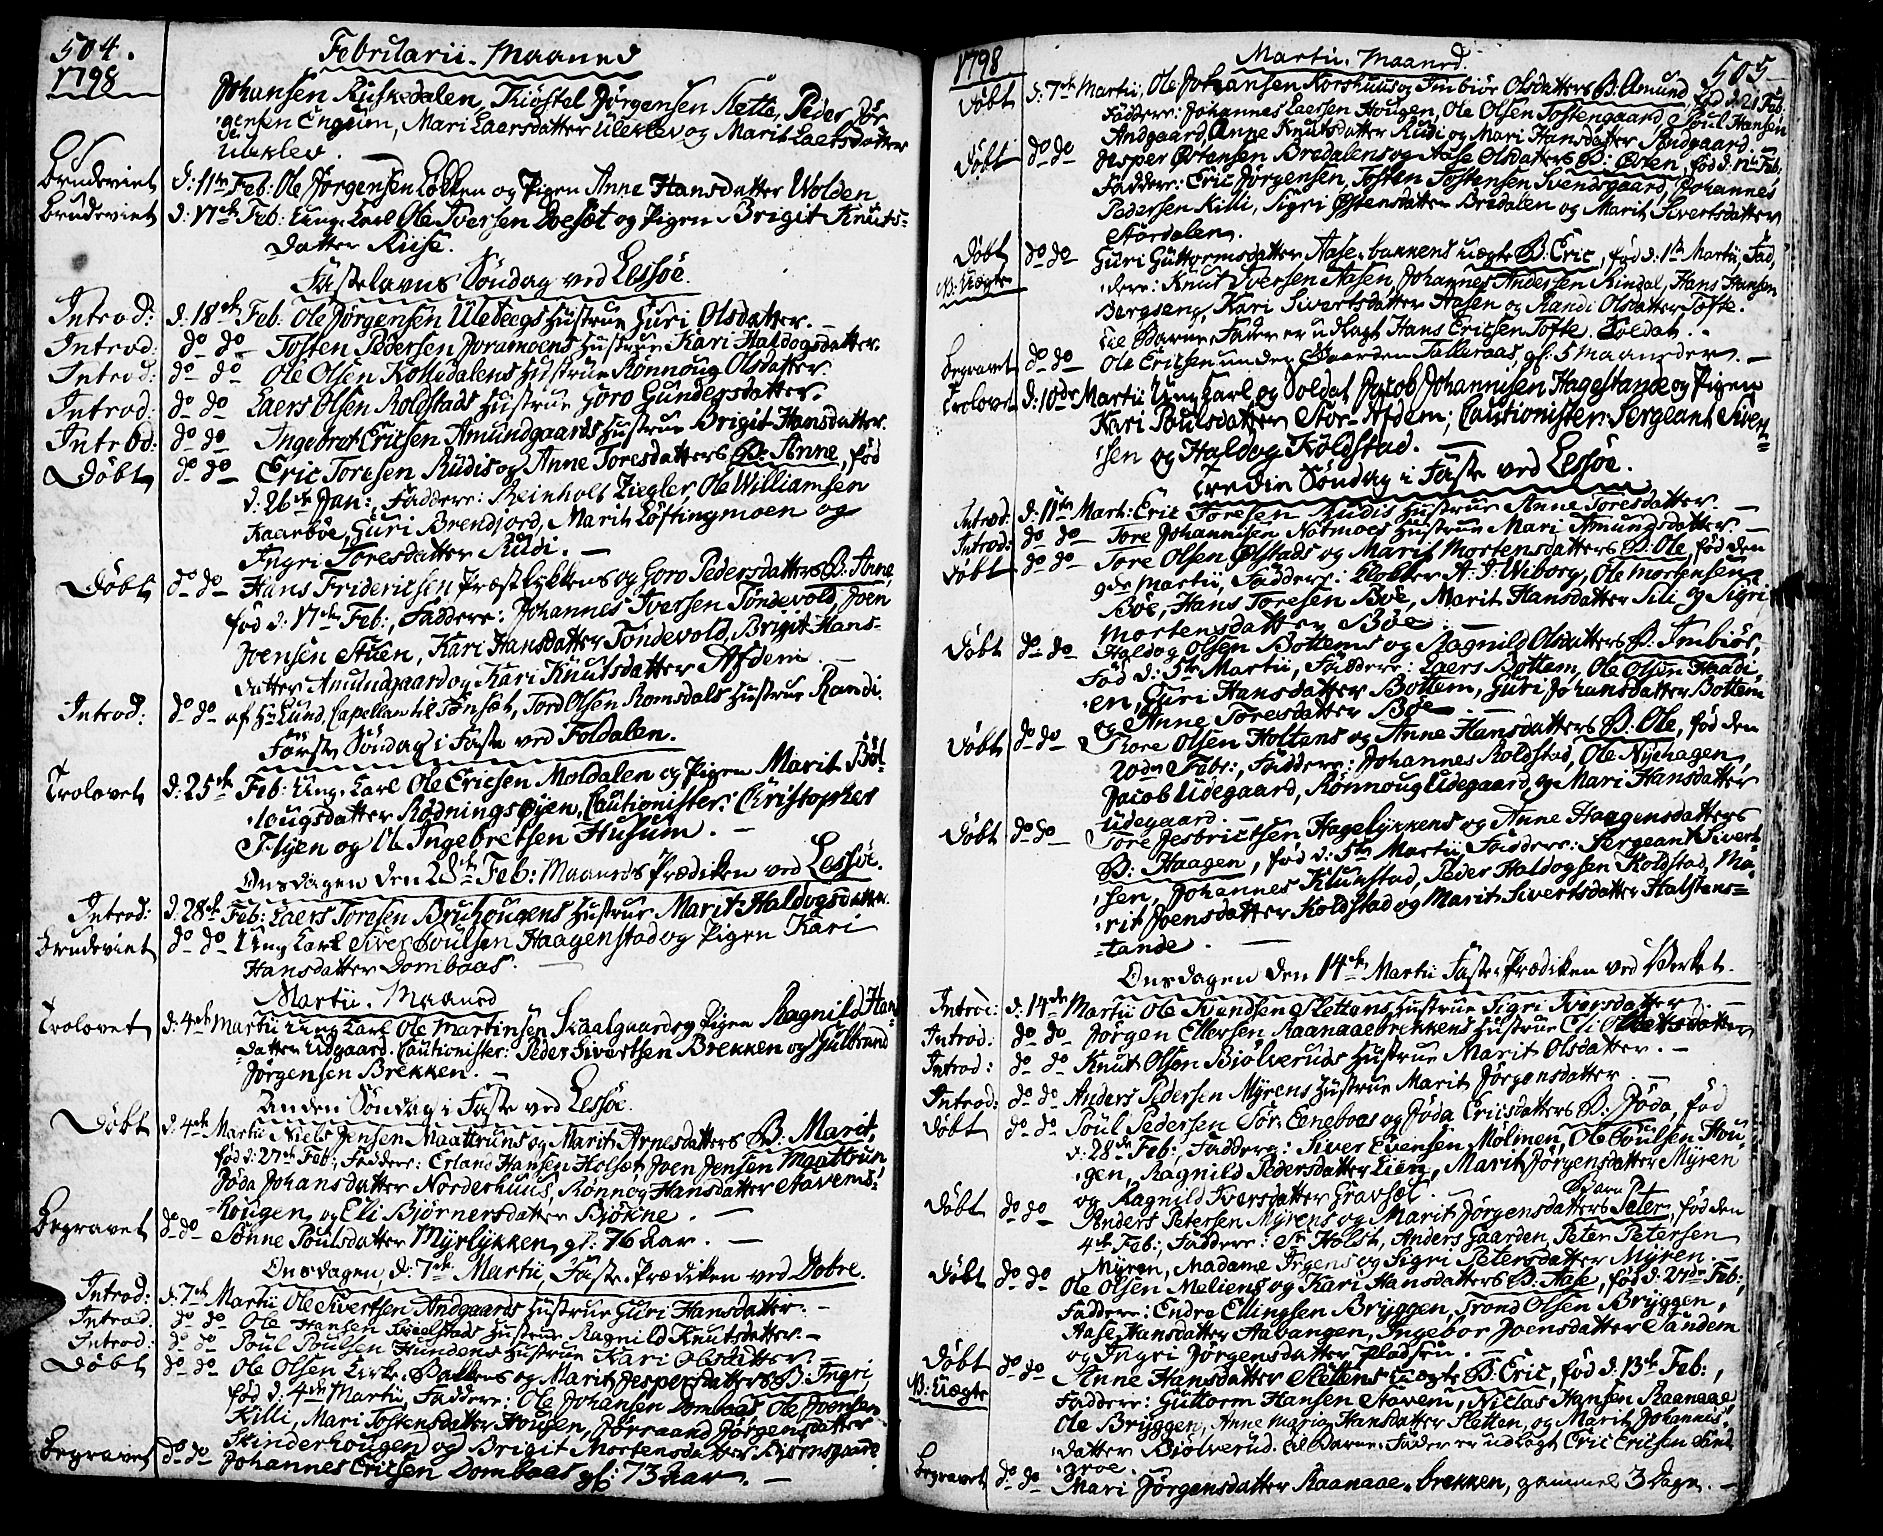 504.
1798
Februarii Maaned
Johansen Ruskedalen, Kiøstel Jørgensen Slette, Peder Jør
gensen Engum, Mari Laersdatter Uleklev og Marit Laersdatter
Uleklev.
Brudeviet d: 11te Feb: Ole Jørgensen Løkken og Pigen Anne Hansdatter Wolden
Brudeviet d: 17de Feb: Ung-Karl Ole Iversen Dvesæt og Pigen Brigit Knuts-
datter Ruse.
Fastelavns Søndag ved Lessøe.
Introd: d: 18de Feb: Ole Jørgensen Ulebergs Hustrue Guri Olsdatter. –
Introd: do do Tosten Pedersen Joramoens Hustrue Kari Haldogsdatter.
Introd: do do Ole Olsen Kolledalens Hustrue Rønnoug Olsdatter.
Introd: do do Laers Olsen Roldstads Hustrue Goro Gundersdatter.
Introd: do do Ingebret Ericsen Amundgaards Hustrue Brigit Hansdatter.
Døbt do do Eric Toresen Rudis og Anne Toresdatters B: Anne, fød
d: 26de Jan:, Faddere: Reinholt Ziegler, Ole Williamsen
Kaarbøe, Guri Brendjord, Marit Løftingmoen og
Ingri Toresdatter Rudi. –
Døbt do do Hans Fridericsen Præstlykkens og Goro Pedersdatters B: Anne,
fød d: 17de Feb:, Faddere: Johannes Iversen Tøndevold, Joen
Joensen Stuen, Kari Hansdatter Tøndevold, Brigit Hans-
datter Amundgaard og Kari Knutsdatter Afdem. –
Introd: do do af Hr Lund, Capellan til Tønsæt, Tord Olsen Romsdals Hustrue Randi.
Første Søndag i Faste ved Foldalen.
Trolovet d: 25de Feb: Ung-Karl Ole Ericsen Moldalen og Pigen Marit Bøl-
lougsdatter Rødnings Øyen, Cautionister: Christopher
Flyen og Ole Ingebretsen Husum. –
Onsdagen den 28de Feb: Maaneds Prædiken ved Lessøe.
Introd: d: 28de Feb: Laers Toresen Bruhougens Hustrue Marit Haldogsdatter.
Brudeviet do do Ung Karl Siver Poulsen Haagenstad og Pigen Kari
Hansdatter Dombaas. –
Martii Maaned
Trolovet d: 4de Martii Ung Karl Ole Martinsen Skaalgaard og Pigen Ragnild Hans
datter Udgaard. Cautionister: Peder Sivertsen Brekken og Gulbrand
Jørgensen Brekken. –
Anden Søndag i Faste ved Lessøe.
Døbt d: 4de Martii Niels Jensen Maattruns og Marit Arnesdatters B: Marit,
fød d: 27de Feb:, Faddere: Erland Hansen Holsæt, Joen Jensen Maattrun
Jøda Johansdatter Norderhuus, Rønnog Hansdatter Stavems-
hougen og Eli Bjørnersdatter Bjøkne. –
Begravet do do Sønne Poulsdatter Myrlykken, gl: 76 Aar. –
Onsdagen d: 7de Martii, Faste-Prædiken ved Dobre.
Introd: d: 7de Martii Ole Sivertsen Andgaards Hustrue Guri Hansdatter. –
Introd: do do Ole Hansen Kieelstads Hustrue Ragnild Knutsdatter. –
Introd: do do Poul Poulsen Hundens Hustrue Kari Olsdatter. –
Døbt do do Ole Olsen Kirke-Bakkens og Marit Jespersdatters B: Ingri
fød d: 4de Martii, Faddere: Ole Johansen Dombaas, Ole Joensen
Killi, Mari Tostensdatter Hougen, Jørraand Jørgensdatter
Skinderhougen og Brigit Mortensdatter Bjørnsgaard.
Begravet do do Johannes Ericsen Dombaas gl: 73 Aar. –
1798
Martii Maaned.
505
Døbt d: 7de Martii, Ole Johansen Korshuus og Imbiør Olsdatters B: Amund, fød d: 21 Feb:
Faddere: Johannes Laersen Hougen, Ole Olsen Tostengaard, Poul Hansen
Andgaard, Anne Knutsdatter Rudi og Mari Hansdatter Andgaard. –
Døbt do do Jesper Østensen Bredalens og Aase Olsdatters B: Østen, fød d: 12te Feb:
Faddere: Eric Jørgensen, Tosten Tostensen Svendsgaard, Johannes
Pedersen Killi, Sigri Østensdatter Bredalen og Marit Sivertsdatter
Stordalen.
Døbt do do Guri Guttormsdatter Aase-bakkens uægte B: Eric, fød d: 1te Martii, Fad,
N: Uægte
dere: Knut Iversen Aasen, Johannes Andersen Rindal, Hans Hansen
Bergseng, Kari Sivertsdatter Aasen og Randi Olsdatter Tofte.
Til Barne-Fader er udlagt Hans Ericsen Tofte, Soldat. –
Begravet do do Ole Ericsen under Gaarden Talleraas, gl: 5 Maaneder. –
Trolovet d: 10de Martii Ung Karl og Soldat Jacob Johannisen Hagestande og Pigen
Kari Poulsdatter Stor-Afdem; Cautionister: Sergeant Siver-
sen og Haldog Koldstad. –
Tredie Søndag i Faste ved Lessøe.
Introd: d: 11te Mart: Eric Toresen Rudis Hustrue Anne Toresdatter. –
Introd: do do Tore Johannisen Nørmoes Hustrue Mari Amundsdatter. –
Døbt do do Tore Olsen Ølstads og Marit Mortensdatters B: Ole, fød den
9de Martii, Faddere: Klokker A. J. Wiborg, Ole Mortensen
Bøe, Hans Toresen Bøe, Marit Hansdatter Sili og Sigri
Mortensdatter Bøe. –
Døbt do do Haldog Olsen Bottems og Ragnild Olsdatters B: Imbiør,
fød d: 5te Martii, Faddere: Laers Bottem, Ole Olsen Haadi-
en, Guri Hansdatter Bottem, Guri Johansdatter Bottem
og Anne Toresdatter Bøe –
Døbt do do Tore Olsen Holtens og Anne Hansdatters B: Ole, fød den
20de Febr:, Faddere: Johannes Roldstad, Ole Nyehagen,
Jacob Udegaard, Rønnoug Udegaard, og Mari Hansdatter
Udegaard. –
Døbt do do Tore Jesbrictsen Hagelykkens og Anne Haagensdatters
B: Haagen, fød d: 5te Martii Faddere: Sergeant Sivert-
sen, Johannes Klunstad, Peder Haldogsen Koldstad, Ma-
rit Joensdatter Koldstad og Marit Sivertsdatter Halstens-
tande. –
Onsdagen den 14de Martii Faste-Prædiken ved Værket.
Introd: d: 14de Martii Ole Svendsen Slettens Hustrue Sigri Iversdatter. –
Introd: do do Jørgen Ellevsen Raanaaebrekkens Hustrue Eli datter
Introd: do do Knut Olsen Biølveruds Hustrue Marit Olsdatter. –
Introd: do do Anders Pedersen Myrens Hustrue Marit Jørgensdatter –
Døbt do do Poul Pedersen Sør-Eeneboes og Jøda Ericsdatters B: Jøda, fød
d: 28de Feb:, Faddere: Siver Evensen Mølmen, Ole Poulsen Hou-
gen, Ragnild Pedersdatter Lien, Marit Jørgensdatter Myren
og Ragnild Iversdatter Gravsæt. –
Døbt do do Anders Petersen Myrens og Marit Jørgensdatters Barn Peter, fød den
4de Feb:, Faddere: Sr Holst, Anders Gaarden, Peter Petersen
Myren, Madame Irgens og Sigri Petersdatter Myren. –
Døbt do do Ole Olsen Meliens og Kari Hansdatters B: Aase, fød d: 27de Feb:,
Faddere: Endre Ellingsen Bryggen, Trond Olsen Bryggen,
Aase Hansdatter Aavangen, Ingebor Joensdatter Sandem
og Ingri Jørgensdatter Pladsen. –
Døbt do do Anne Hansdatter Slettens uægte B: Eric, fød d: 13de Feb:,
N: Uægte
Faddere: Guttorm Hansen Stavem, Niclas Hansen Raanaae
Ole Bryggen, Anne Maria Hansdatter Sletten, og Marit Johannis-
datter Biølverud. Til Barne-Fader er udlagt Eric Ericsen Sand-
groe. –
Begravet do do Mari Jørgensdatter Raanaae-brekken, gammel 3 Dage. –